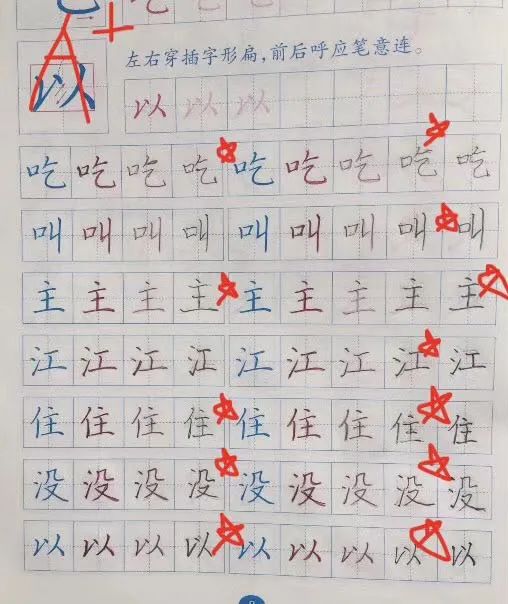 吃 吃 吃
A+
以
左右穿插字形扁，前后呼应笔意连。
以 以 以
吃 吃 吃 吃 吃 吃 吃 吃 吃
叫 叫 叫 叫 叫 叫 叫 叫 叫
主 主 主 主 主 主 主 主 主
江 江 江 江 江 江 江 江 江
住 住 住 住 住 住 住 住 住
没 没 没 没 没 没 没 没 没
以 以 以 以 以 以 以 以 以